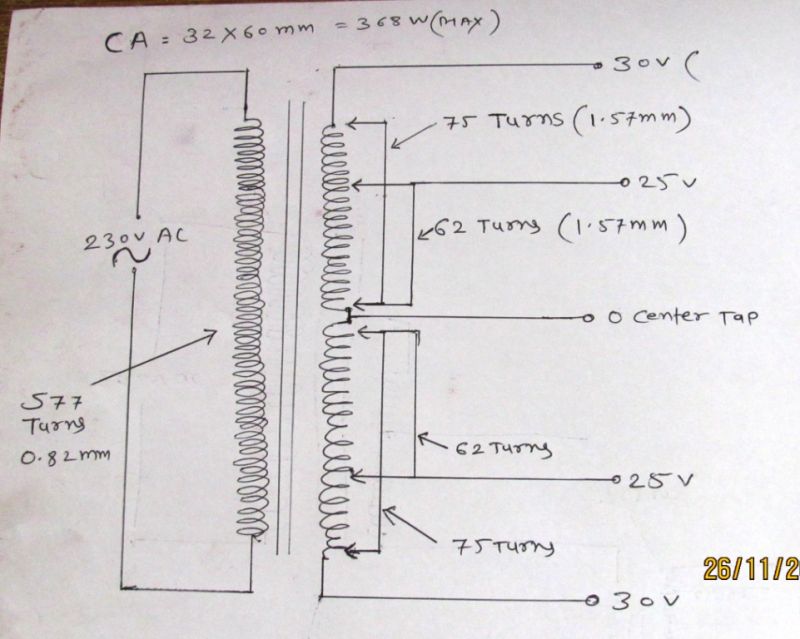 CA = 32X60mm = 368W(MAX)
30V (
75 Turns (1.57mm)
25V
230V AC
62 Turns (1.57mm)
0 Center Tap
577
Turns
0.82mm
62 Turns
25V
75 Turns
30V
26/11/2